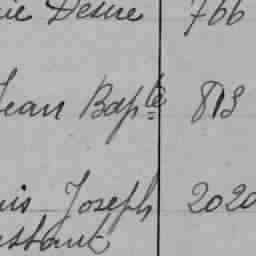 ie Desire 766
Jean Bapte 813
uis Joseph 2020